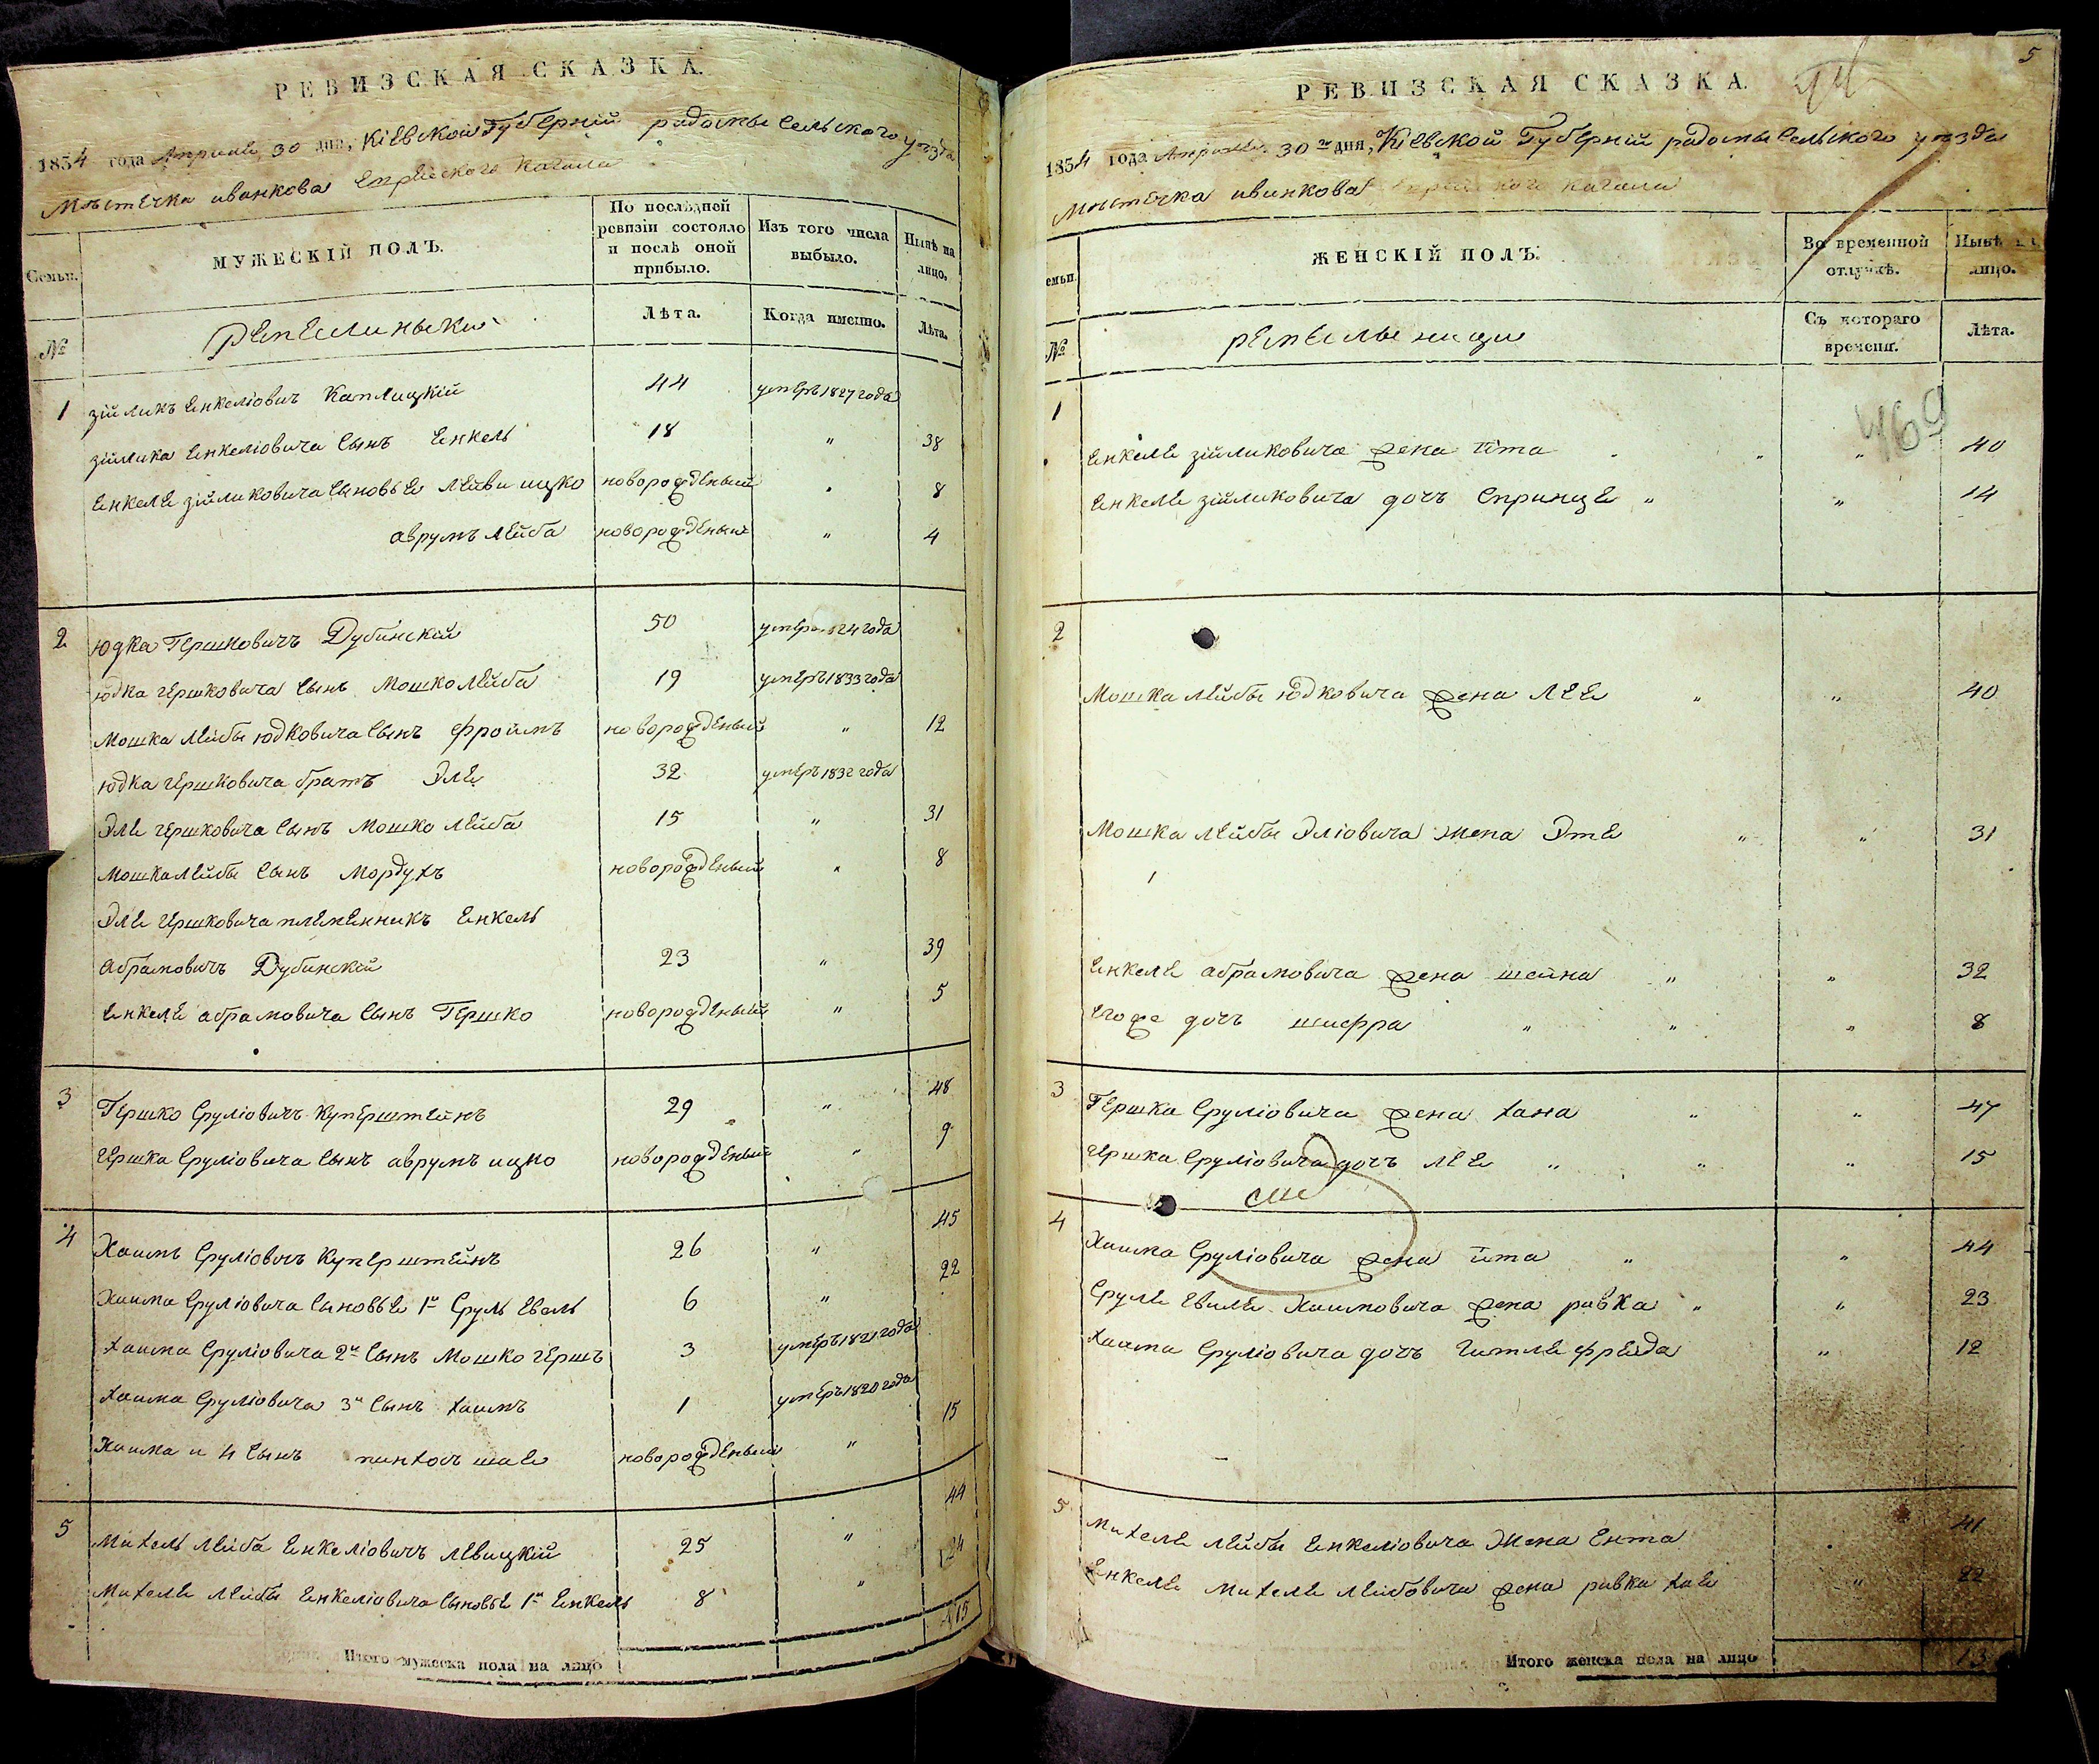 РЕВИЗСКАЯ СКАЗКА.
1834 года Апреля 30 дня, Кіевской Губерній радомысельского уезда
Местечка иванкова Еврейского Кагала
Семьи.
МУЖЕСКІЙ ПОЛЪ.
По послѣдней ревизіи состояло и послѣ оной прибыло.
Изъ того числа выбыло.
Нынѣ на лицо.
№
Лѣта.
Когда именно.
Лѣта.
1 зійликъ Енкеліовичъ Каплицкій 44 умеръ 1827 года
зійлика Енкеліовича Сынъ Енкель 18 " 38
Енкеля зійликовича Сыновья Лейви ицко новорожденый " 8
аврумъ лейба новорожденый " 4
2 юдка Гершковичъ Дубинскій 50 умеръ 24 года
юдка гершковича Сынъ Мошко лейба 19 умеръ 1833 года
Мошка Лейбы юдковича Сынъ фроимъ новорожденый " 12
юдка гершковича братъ Эля 32 умеръ 1832 года
Эля гершковича Сынъ Мошко лейба 15 " 31
Мошка лейбы Сынъ Мордухъ новорожденый " 8
Эля гершковича племенникъ Енкель
абрамовичъ Дубинскій 23 " 39
Енкеля абрамовича Сынъ Гершко новорожденый " 5
3 Гершко Сруліовичъ Куперштейнъ 29 " 48
гершка Сруліовича Сынъ аврумъ ицко новорожденый " 9
4 Хаимъ Сруліовичъ Куперштейнъ 26 " 45
Хаима Сруліовича Сыновья 1й Сруль Еваль 6 " 22
хаима Сруліовича 2й Сынъ Мошко гершъ 3 умеръ 1821 года
хаима Сруліовича 3й Сынъ хаимъ 1 умеръ 1820 года
Хаима и 4 Сынъ пинхосъ шая новорожденый " 15
5 Михель лейба Енкеліовичъ левицкій 25 " 44
Михеля лейбы Енкеліовича Сыновья 1й Енкель 8 " 24
Итого мужеска пола на лицо 15
5
РЕВИЗСКАЯ СКАЗКА.
1834 года Апреля 30го дня, Кіевской Губерній радомысельского уезда
Местечка иванкова Еврейского кагала
семьи.
ЖЕНСКІЙ ПОЛЪ.
Во временной отлучкѣ.
Нынѣ на лицо.
№
Съ котораго времени.
Лѣта.
469
1
Енкеля зійликовича жена ита " " 40
Енкеля зійликовича дочъ Спринця " " 14
2
Мошка лейбы юдковича жена Лея " " 40
Мошка лейбы Эліовича жена Этя " " 31
Енкеля абрамовича жена шейна " " 32
Егоже дочъ шифра " " " 8
3 Гершка Сруліовича жена хана " " 47
гершка Сруліовича дочъ лея " " " 15
4 Хаима Сруліовича жена ита " " 44
Сруля Еваля Хаимовича жена ривка " " 23
хаима Сруліовича дочъ гитля фрейда " 12
5 Михеля лейбы Енкеліовича жена Ента 41
Енкеля михеля лейбовича жена ривка хая " 22
Итого женска пола на лицо 13